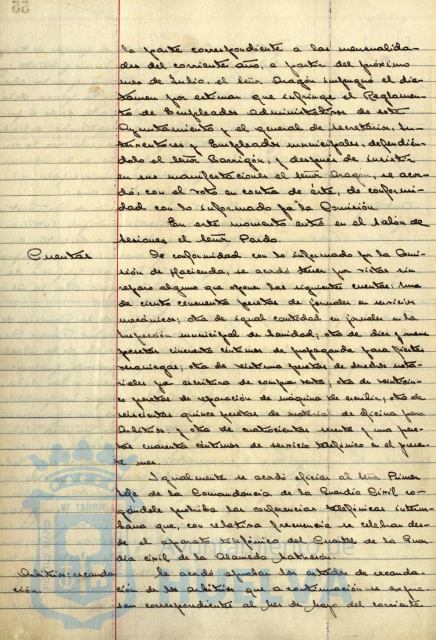 la parte correspondiente a las mensualida-
des del corriente año, a partir del próximo
mes de Julio, el señor Aragón impugnó el dic-
tamen por estimar que infringe el Reglamen-
to de Empleados Administrativos de este
Ayuntamiento y el general de Secretarios, In-
terventores y Empleados municipales, defendién-
dolo el señor Garrigón, y después de insistir
en sus manifestaciones el señor Aragón, se acor-
dó, con el voto en contra de éste, de conformi-
dad con lo informado por la Comisión.
En este momento entró en el salón de
sesiones el señor Pardo.
Cuentas
De conformidad con lo informado por la Comi-
sión de Hacienda, se acordó tener por vistas sin
reparo alguno que oponer las siguientes cuentas: una
de ciento cincuenta pesetas de jornales en servicios
mecánicos; otra de igual cantidad en jornales en la
Inspección municipal de Sanidad; otra de diez y nueve
pesetas cincuenta céntimos de propaganda para fiestas
veraniegas; otra de pesetas de derechos nota-
riales por escritura de compra venta; otra de veinticin-
co pesetas de reparación de máquina de escribir; otra de
seiscientas quince pesetas de material de oficina para
Arbitrios; y otra de cuatrocientas sesenta y una pese-
tas cuarenta céntimos de servicio telefónico en el presen-
te mes.
Igualmente se acordó oficiar al señor Primer
Jefe de la Comandancia de la Guardia Civil ro-
gándole prohiba las conferencias telefónicas interur-
banas que, con relativa frecuencia se celebran des-
de el aparato telefónico del Cuartel de la Guar-
dia civil de la Alameda Sundheim.
Arbitrios: recauda-
ción.
Se acordó aprobar los estados de recauda-
ción de los arbitrios que a continuación se expre-
san correspondientes al mes de Mayo del corriente